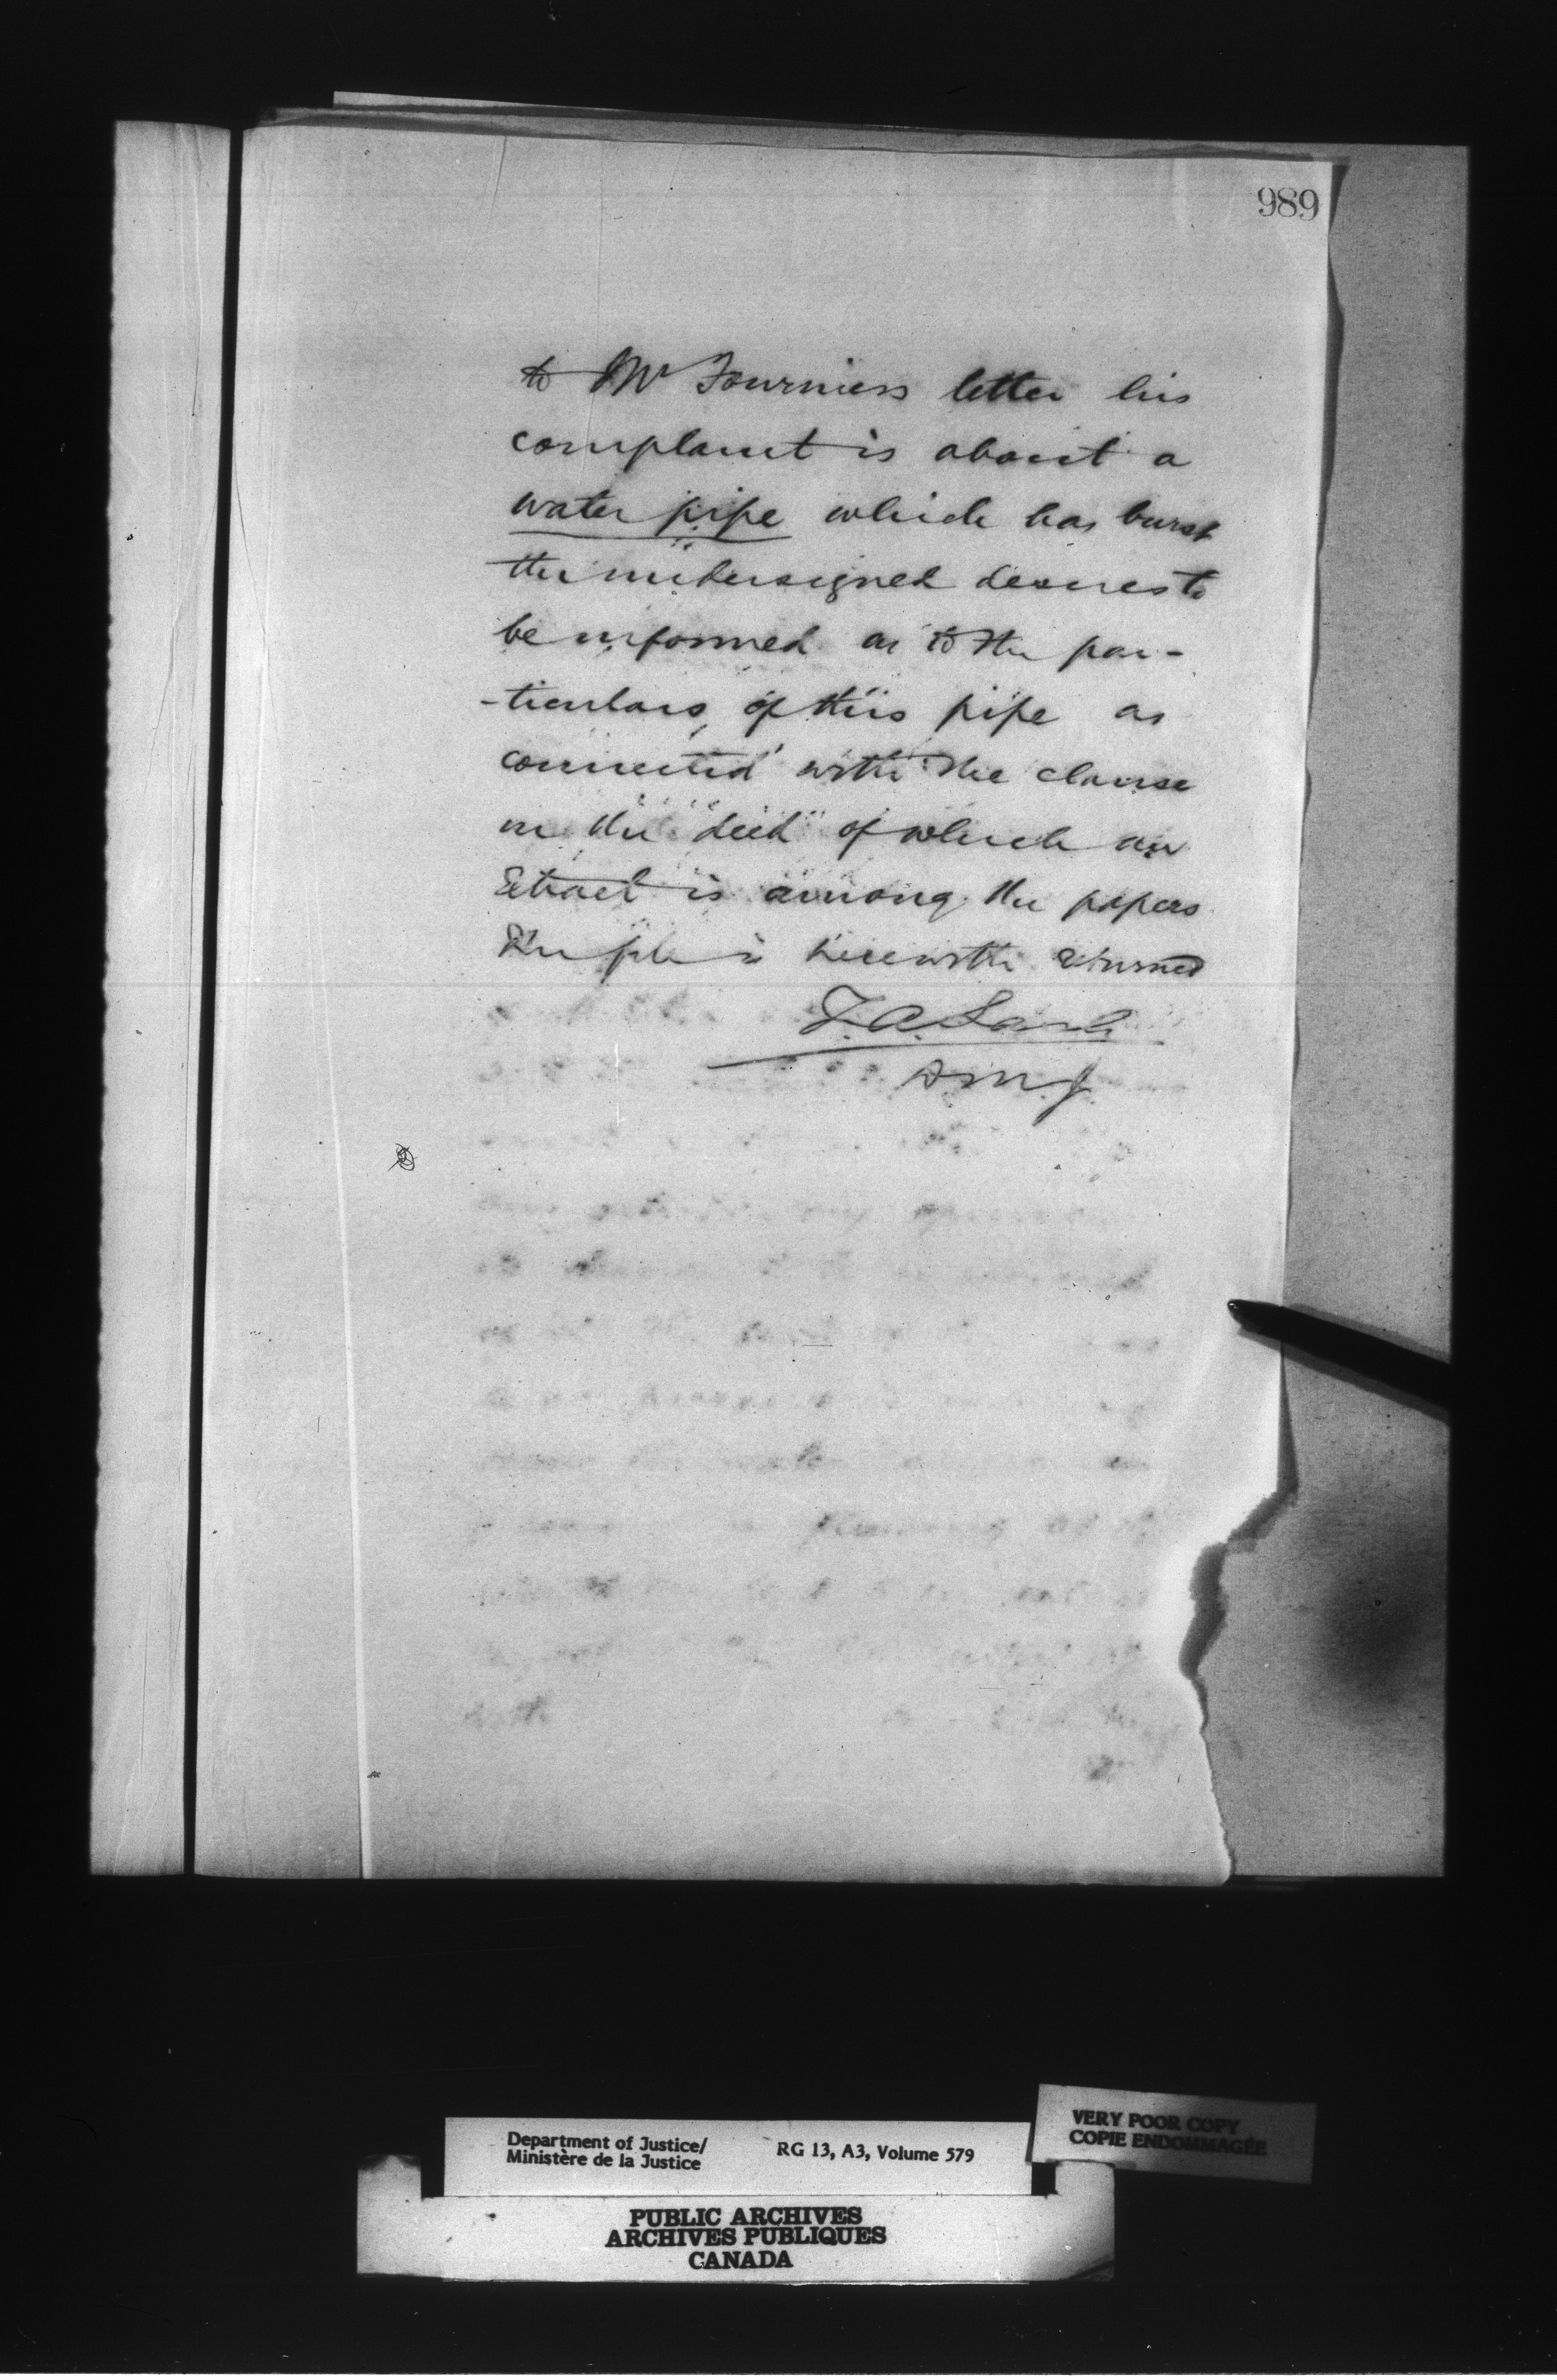 989
to Mr Fourniers letter his
complaint is about a
water pipe which has burst
the undersigned desires to
be informed as to the par-
-ticulars of this pipe as
connected with the clause
in the deed of which an
Extract is among the papers
The file is herewith returned
Z.A. Lash
D.M.J.
Department of Justice/
Ministère de la Justice
RG 13, A3, Volume 579
VERY POOR COPY
COPIE ENDOMMAGÉE
PUBLIC ARCHIVES
ARCHIVES PUBLIQUES
CANADA